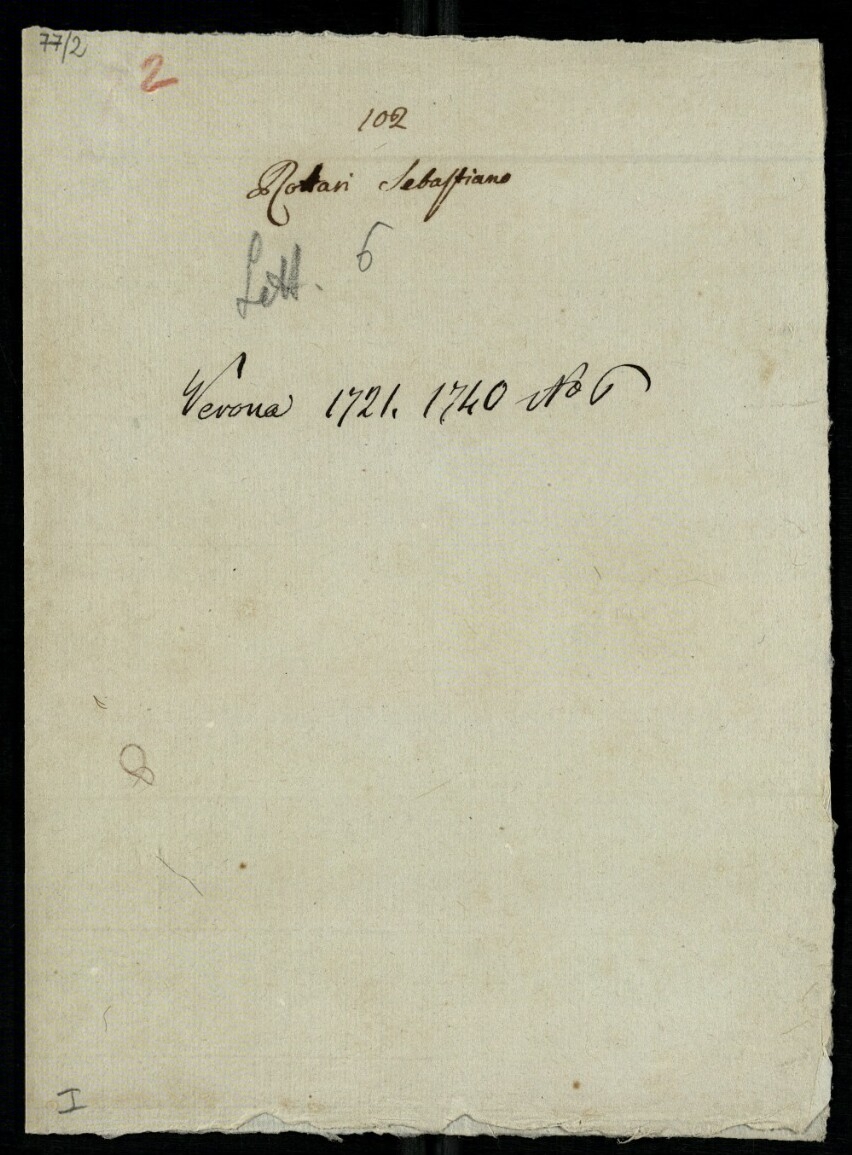 77/2
2
102
Rottari Sebastiano
Lett. 6
Verona 1721. 1740 No 6
I